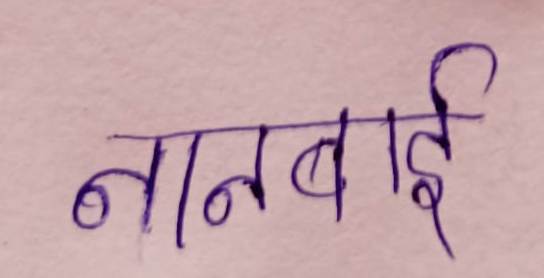 नानबाई